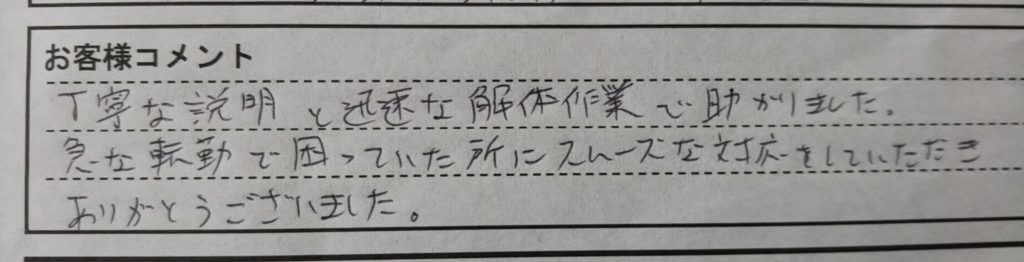 お客様コメント
丁寧な説明と迅速な解体作業で助かりました。
急な転勤で困っていた所にスムーズな対応をしていただき
ありがとうございました。